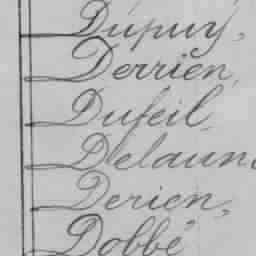 Dupuy,
Derrien,
Dufeil,
Delaun
Derien,
Dobbé